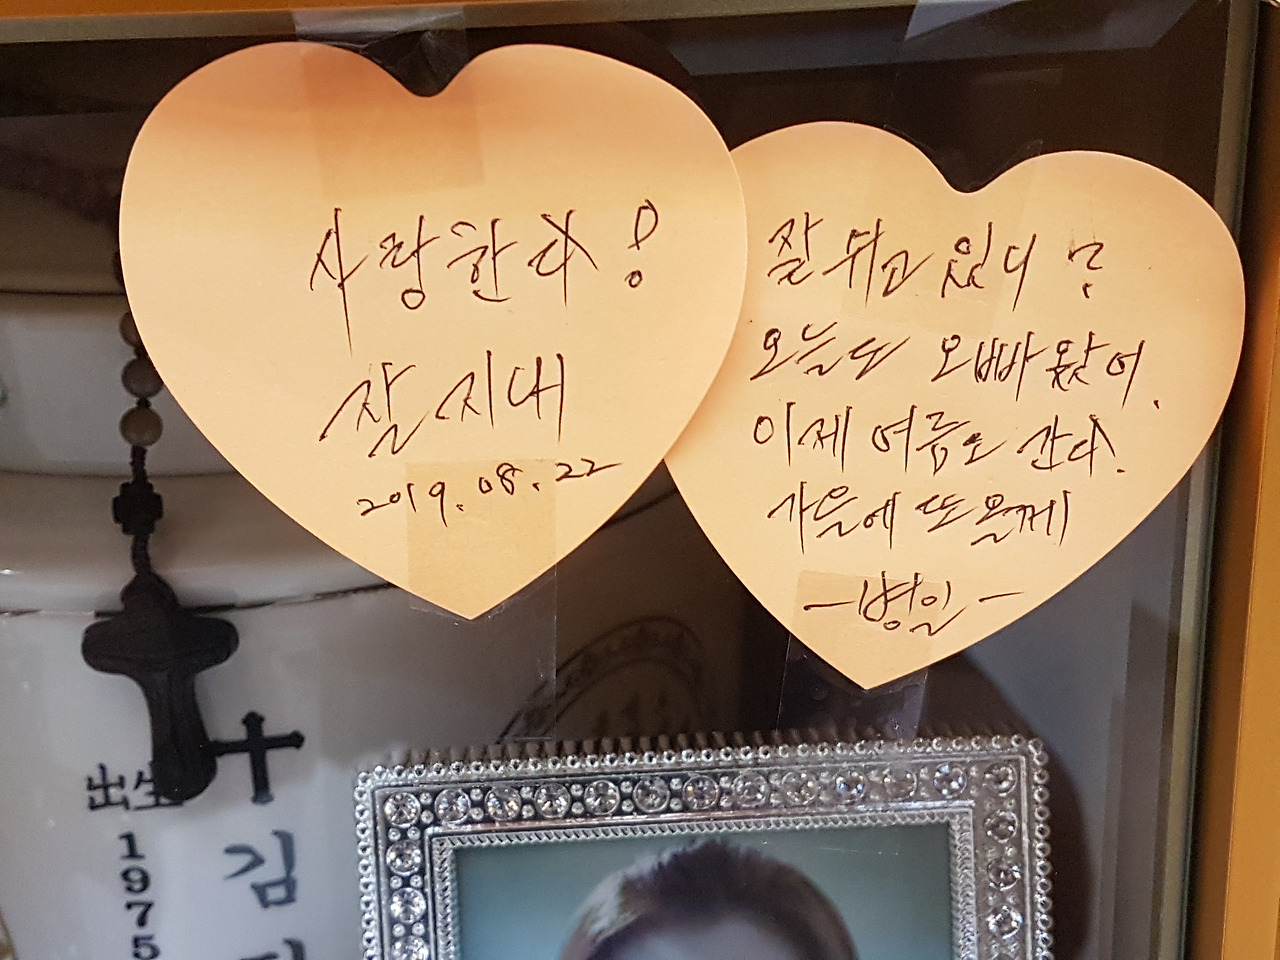 사랑한다!
잘 지내
2019.08.22
잘 쉬고 있니?
오늘도 오빠 왔어.
이제 여름도 간다.
가을에 또 올께
-병일-
出生
1975
김